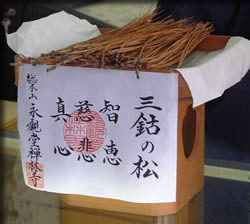 三鈷の松
智恵
慈悲
真心
総本山永観堂禅林寺